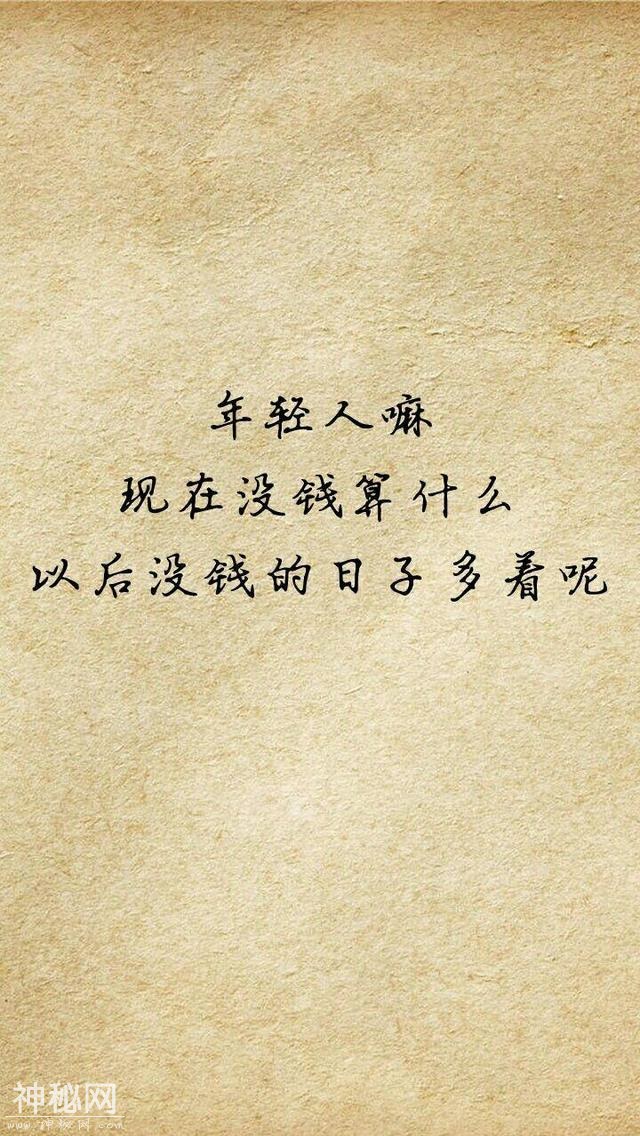 年轻人嘛
现在没钱算什么
以后没钱的日子多着呢
神秘网
www.神秘网.com